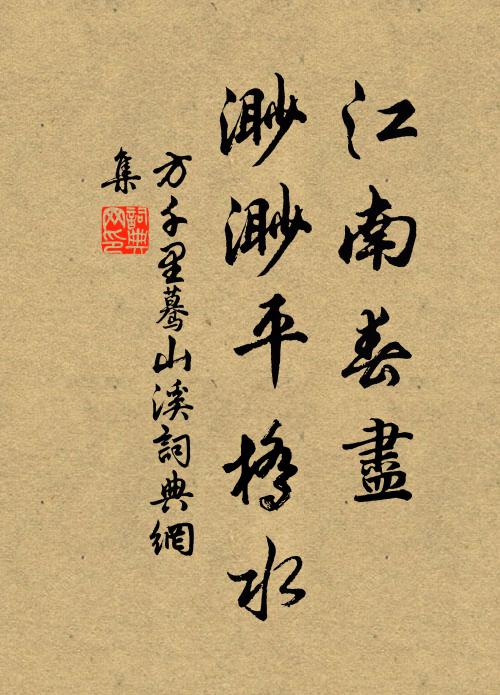 江南春盡
渺渺平橋水
方千里驀山溪詞典網
集
詞典
网印